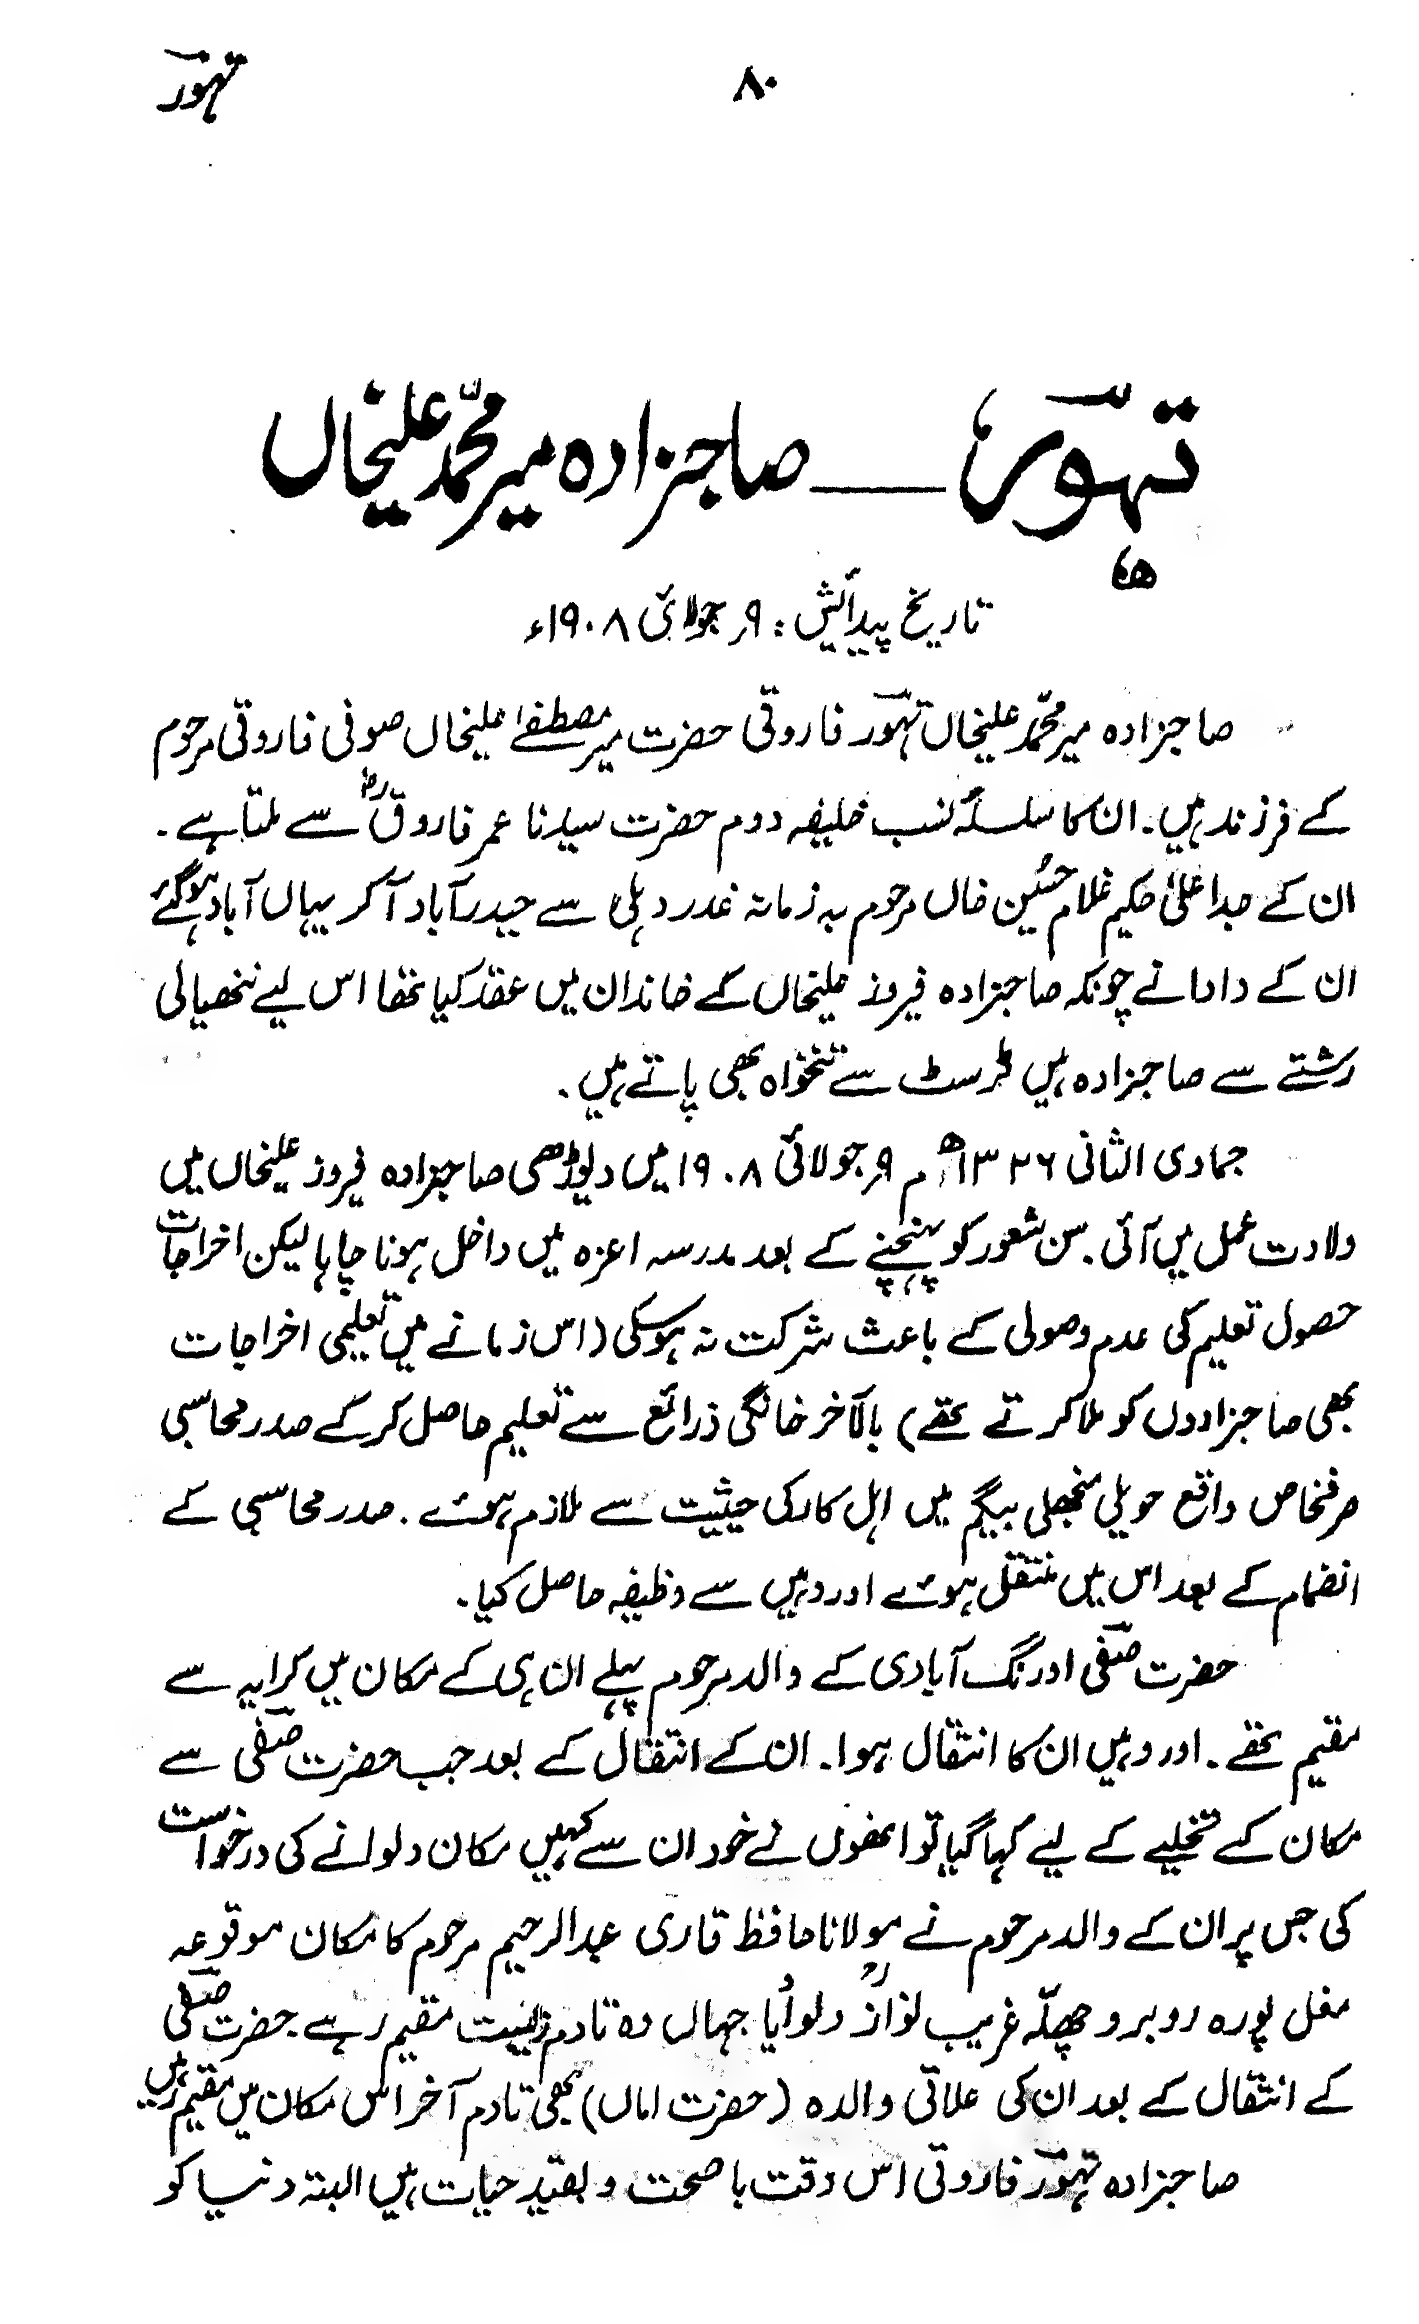 تہوّر
۸۰
تہوّر ــــ صاحبزادہ میر محمّد علیخاں
تاریخ پیدائش : ۹ر جولائی ۱۹۰۸ء
صاحبزادہ میر محمّد علیخاں تہوّر فاروقی حضرت میر مصطفےٰ علیخاں صوفی فاروقی مرحوم
کے فرزند ہیں۔ ان کا سلسلۂ نسب خلیفہ دوم حضرت سیدنا عمر فاروقؓ سے ملتا ہے۔
ان کے جد اعلیٰ حکیم غلام حسُین خاں مرحوم بہ زمانہ غدر دہلی سے حیدرآباد آکر یہاں آباد ہوگئے
ان کے دادا نے چونکہ صاحبزادہ فیروز علیخاں کے خاندان میں عقد کیا تھا اس لیے ننھیالی
رشتے سے صاحبزادہ ہیں ٹرسٹ سے تنخواہ بھی پاتے ہیں۔
جمادی الثانی ۱۳۲۶ھ م ۹ر جولائی ۱۹۰۸ میں دیوڑھی صاحبزادہ فیروز علیخاں میں
ولادت عمل میں آئی۔ سن شعور کو پہنچنے کے بعد مدرسہ اعزہ میں داخل ہونا چاہا لیکن اخراجات
حصول تعلیم کی عدم وصولی کے باعث شرکت نہ ہوسکی (اس زمانے میں تعلیمی اخراجات
بھی صاحبزادوں کو ملا کرتے تھے) بالآخر خانگی ذرائع سے تعلیم حاصل کرکے صدر محاسبی
صرفخاص واقع حویلی منجھلی بیگم میں اہل کار کی حیثیت سے ملازم ہوئے۔ صدر محاسبی کے
انضمام کے بعد اس میں منتقل ہوئے اور وہیں سے وظیفہ حاصل کیا۔
حضرت صفی اورنگ آبادی کے والد مرحوم پہلے ان ہی کے مکان میں کرایہ سے
مقیم تھے۔ اور وہیں ان کا انتقال ہوا۔ ان کے انتقال کے بعد جب حضرت صفی سے
مکان کے تخلیے کے لیے کہا گیا تو انھوں نے خود ان سے کہیں مکان دلوانے کی درخواست
کی جس پر ان کے والد مرحوم نے مولانا حافظ قاری عبدالرحیم مرحوم کا مکان موقوعہ
مغل پورہ روبرو چھلّہ غریب نوازؒ دلوایا جہاں وہ تادم زیست مقیم رہے۔ حضرت صفی
کے انتقال کے بعد ان کی علاتی والدہ (حضرت اماں) بھی تادم آخر اس مکان میں مقیم رہیں
صاحبزادہ تہوّر فاروقی اس وقت باصحت و بقید حیات ہیں البتہ دنیا کو